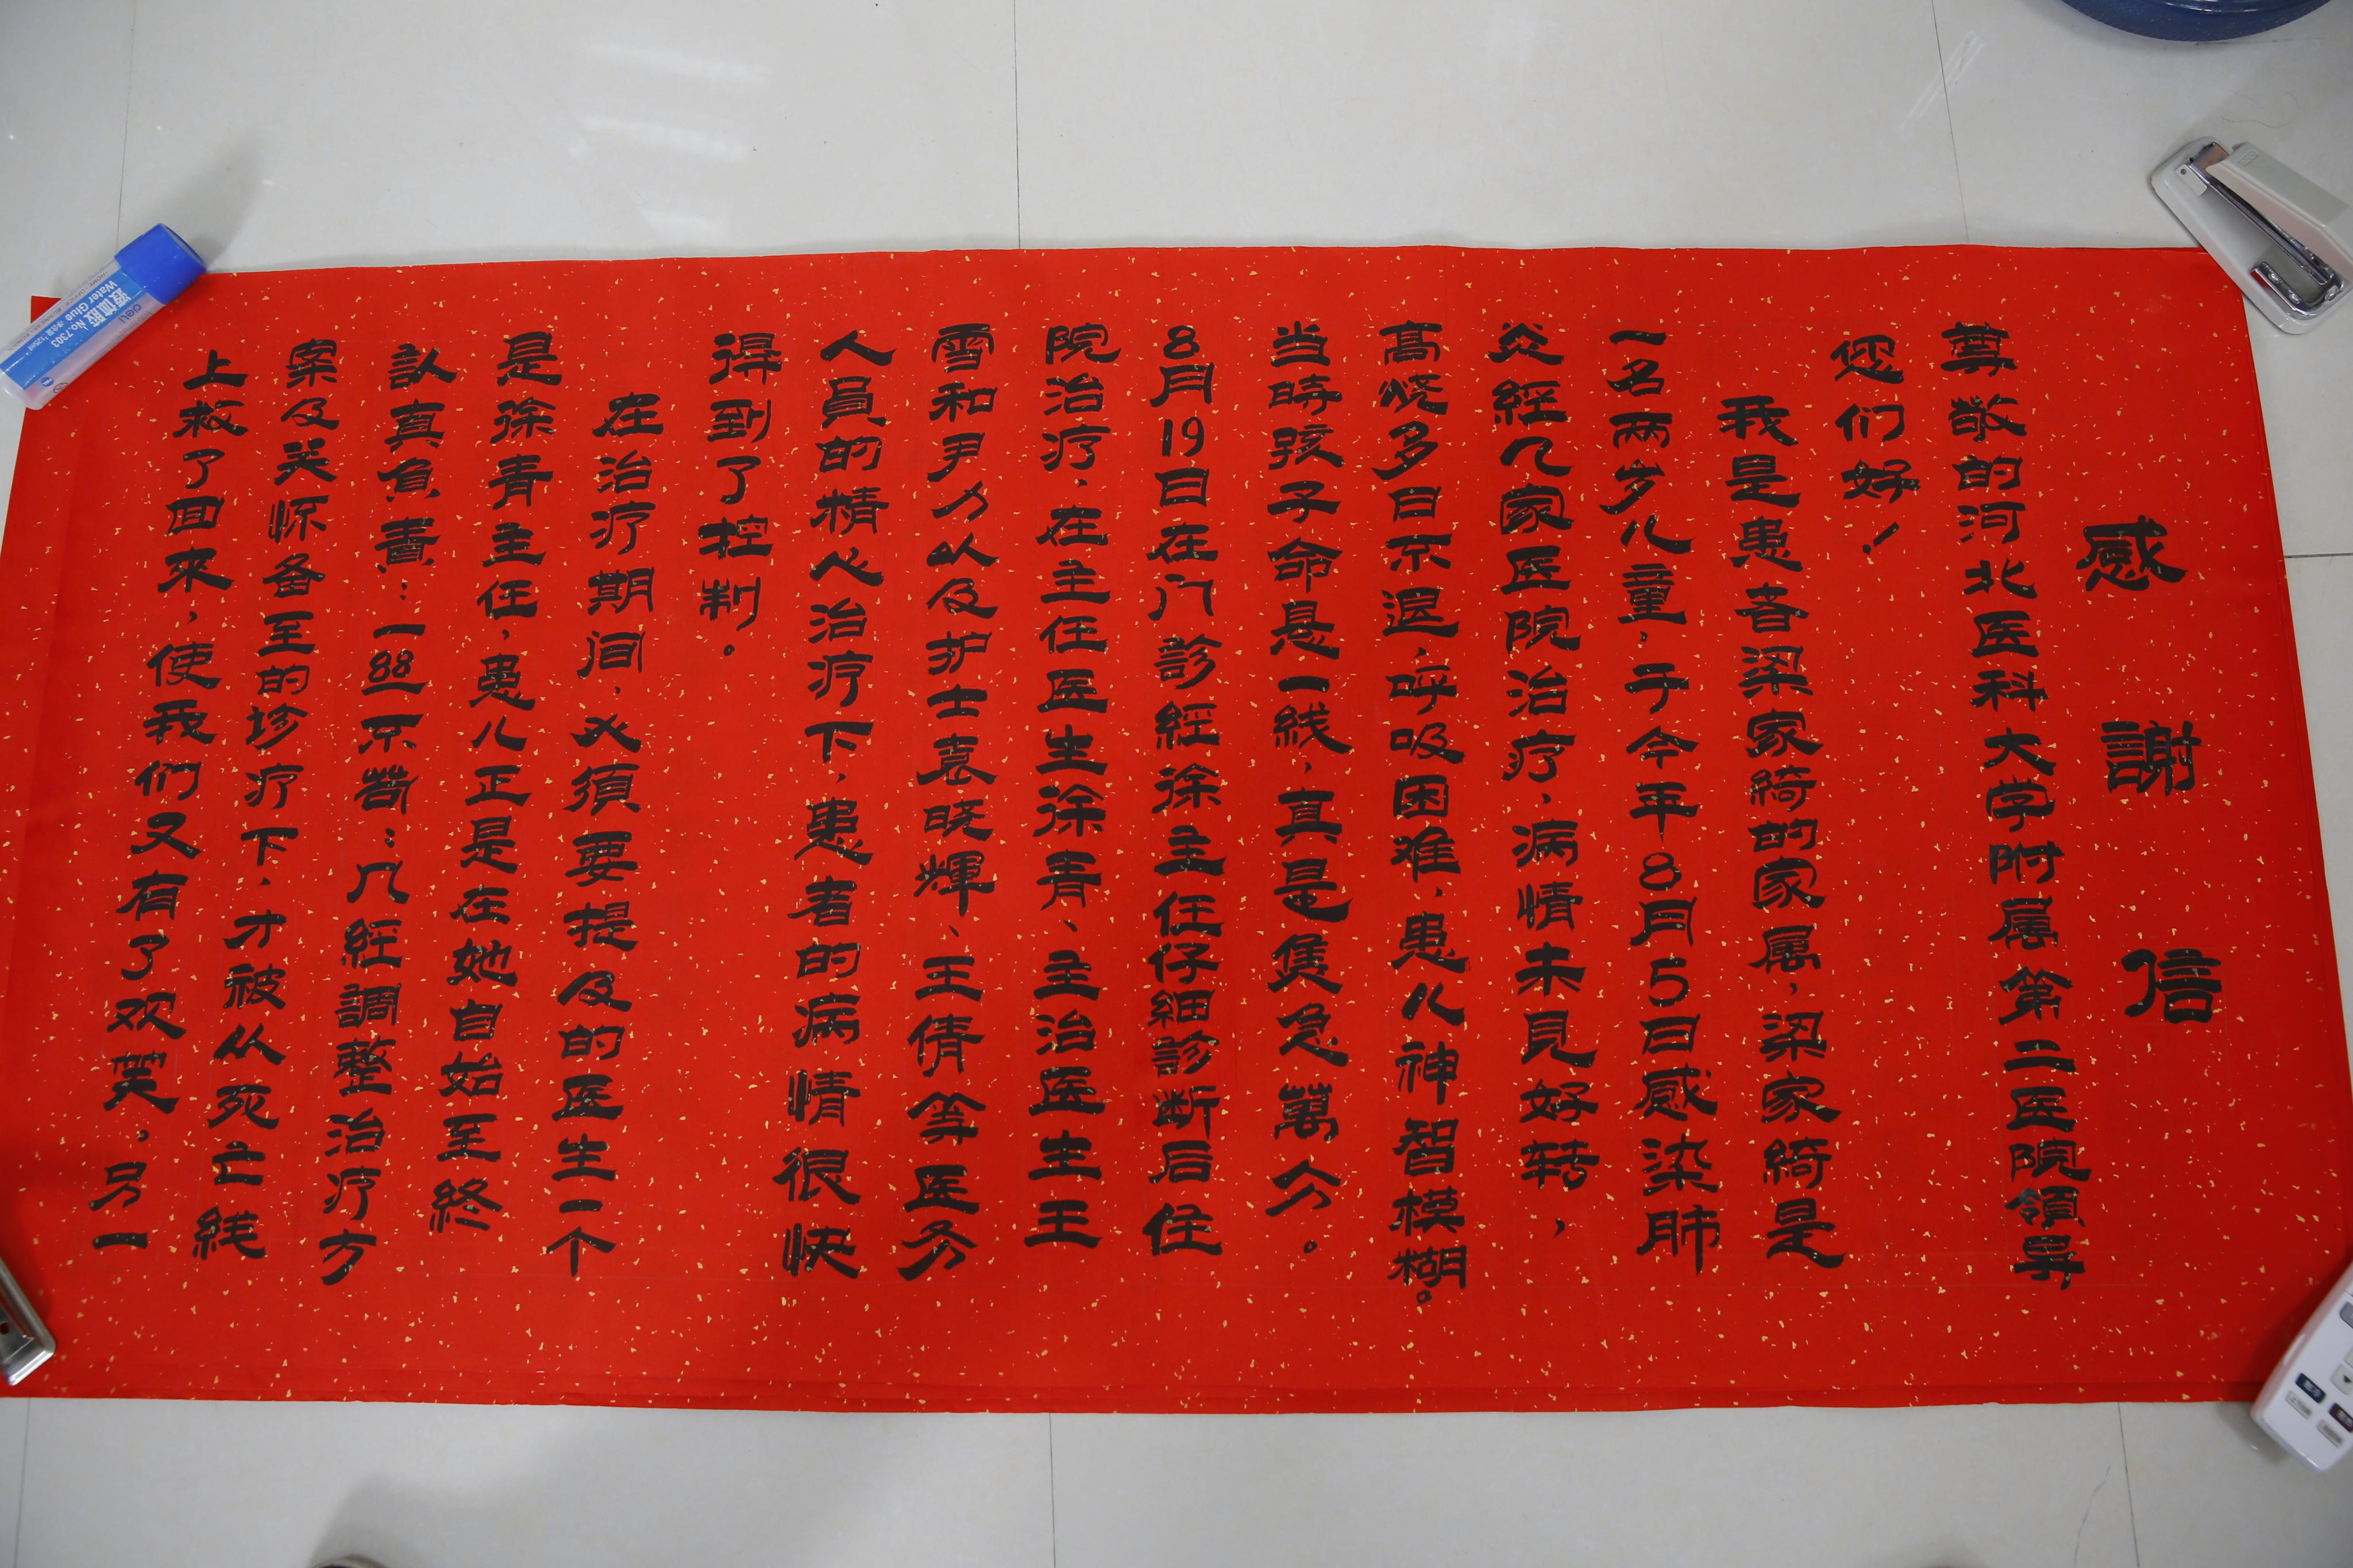 感謝信
尊敬的河北医科大学附属第二医院領导
您们好！
我是患者梁家綺的家属，梁家綺是
一名两岁儿童，于今年8月5日感染肺
炎經几家医院治疗，病情未見好转，
高烧多日不退，呼吸困难，患儿神智模糊。
当時孩子命悬一线，真是煲急萬分。
8月19日在门診經徐主任仔細診断后住
院治疗，在主任医生徐青、主治医生王
雪和尹力以及护士袁晓輝、王倩等医务
人員的精心治疗下，患者的病情很快
得到了控制。
在治疗期间，必須要提及的医生一个
是徐青主任，患儿正是在她自始至終
認真負責：一丝不苟：几經調整治疗方
案及关怀备至的珍疗下，才被从死亡线
上救了回來，使我们又有了欢笑，另一
deli
液体胶 No.7303
Water Glue